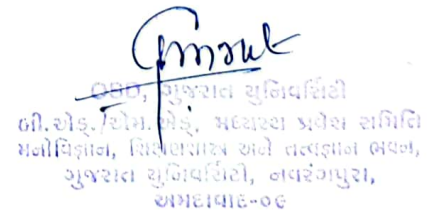 OSD, ગુજરાત યુનિવર્સિટી
બી.એડ્./એમ.એડ્. મધ્યસ્થ પ્રવેશ સમિતિ
મનોવિજ્ઞાન, શિક્ષણશાસ્ત્ર અને તત્વજ્ઞાન ભવન,
ગુજરાત યુનિવર્સિટી, નવરંગપુરા,
અમદાવાદ-૦૯